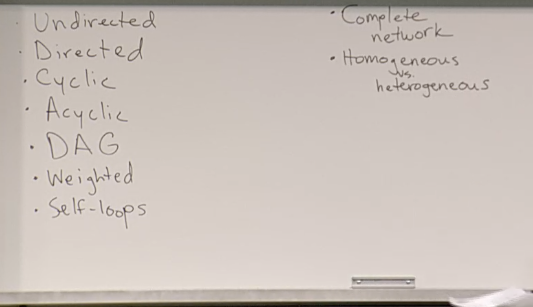 · Undirected
· Directed
· Cyclic
· Acyclic
· DAG
· Weighted
· Self-loops
· Complete
network
· Homogeneous
vs.
heterogeneous